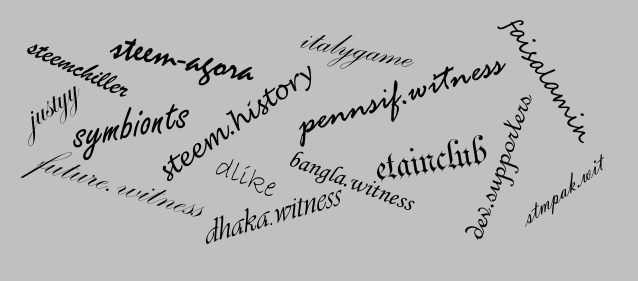 steemchiller
steem-agora
italygame
faisalamin
justyy
symbionts
steem.history
pennsif.witness
future.witness
dlike
bangla.witness
etainclub
dev.supporters
dhaka.witness
stmpak.wit